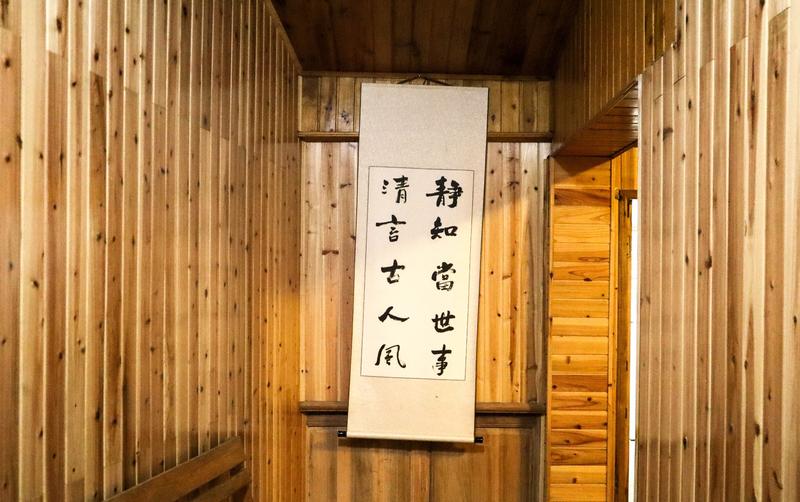 静知當世事
清言古人風